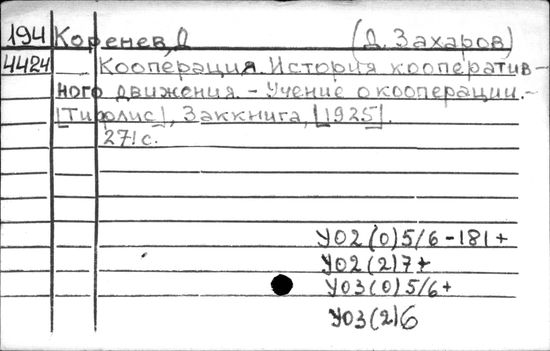 194 Коренев, Д (Д. Захаров)
4424 Кооперация. История кооператив-
ного движения. - Учение о кооперации. -
[Тифлис], Заккнига, [1925].
271 с.
У02(0)5/6-181+
У02(2)7+
У03(0)5/6+
У03(2)6